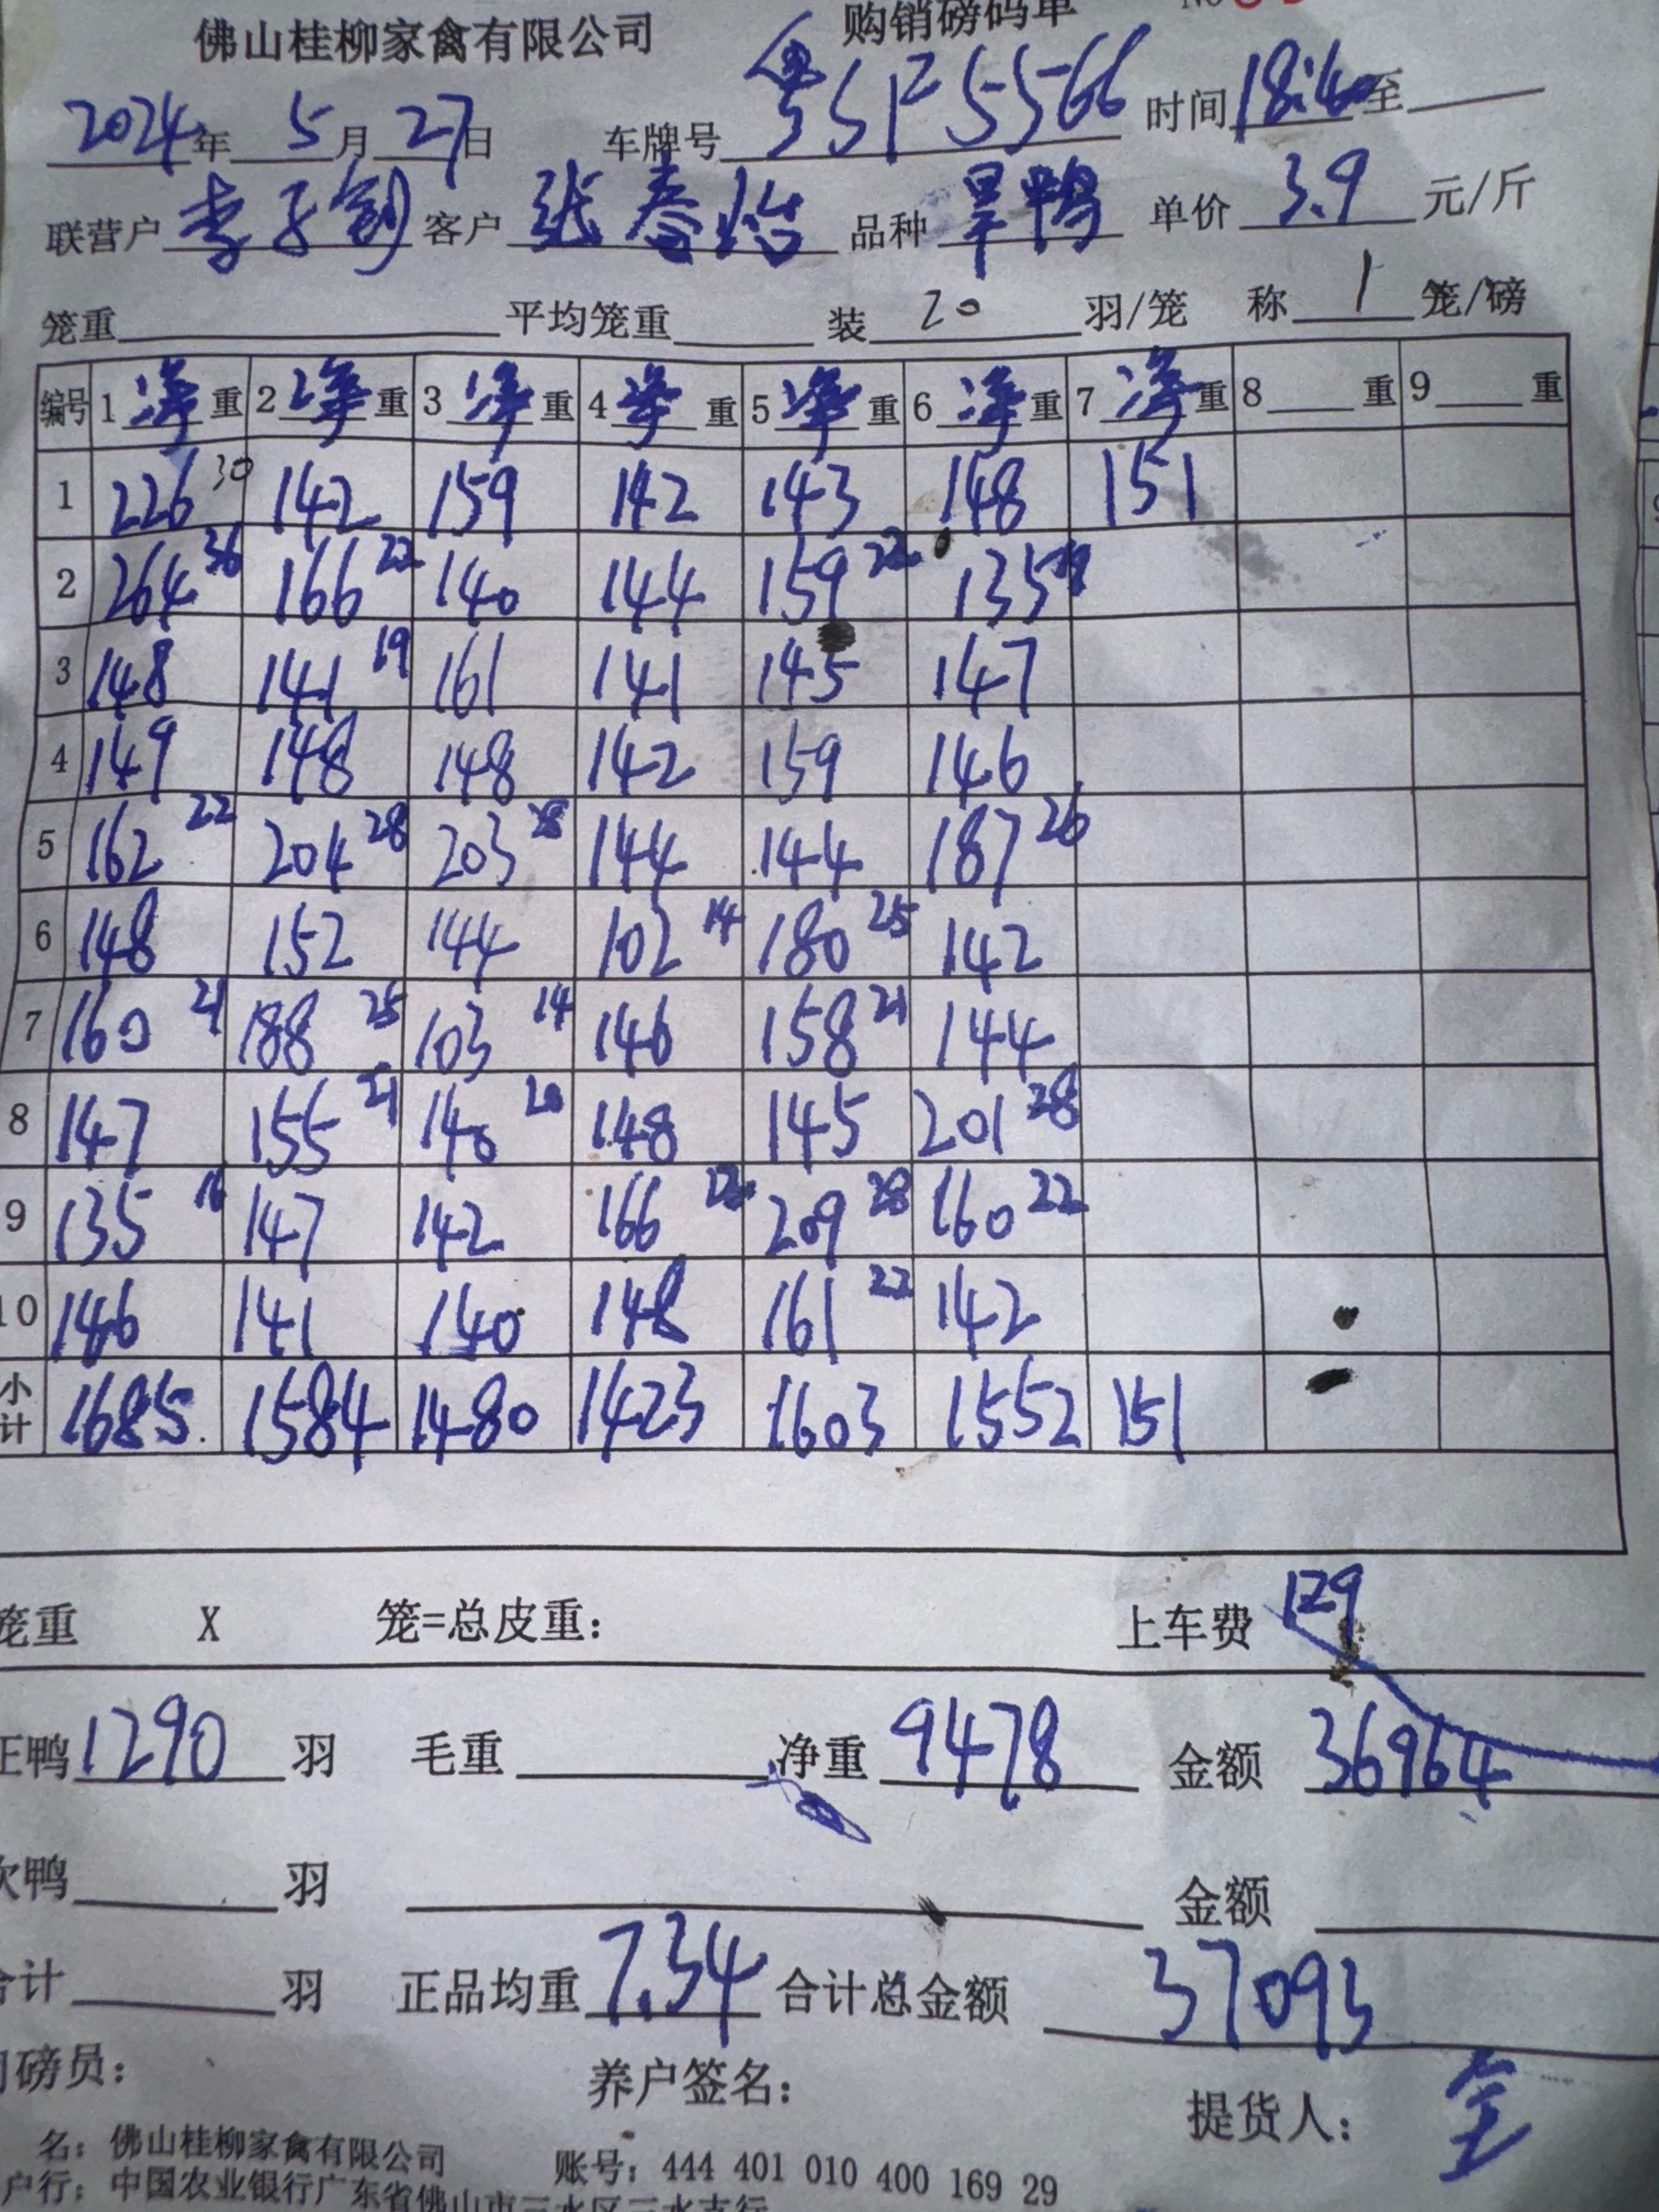 佛山桂柳家禽有限公司 购销磅码单
2024年 5月 27日 车牌号 粤SF5566 时间 18:40至
联营户 李子剑 客户 张春怡 品种 旱鸭 单价 3.9 元/斤
笼重 平均笼重 装 20 羽/笼 称 1 笼/磅
编号 1净重 2净重 3净重 4净重 5净重 6净重 7净重 8重 9重
1 226 30 142 159 142 143 148 151
2 264 36 166 22 140 144 159 22 135
3 148 141 19 161 141 145 147
4 149 148 148 142 159 146
5 162 22 204 28 203 28 144 144 187 26
6 148 152 144 102 14 180 25 142
7 160 21 188 25 103 14 146 158 21 144
8 147 155 21 140 20 148 145 201 28
9 135 147 142 166 22 209 28 160 22
10 146 141 140 148 161 22 142
小计 1685 1584 1480 1423 1603 1552 151
笼重 X 笼=总皮重: 上车费 129
正鸭 1290 羽 毛重 净重 9478 金额 36964
次鸭 羽 金额
合计 羽 正品均重 7.34 合计总金额 37093
磅员: 养户签名: 提货人:
名: 佛山桂柳家禽有限公司 账号: 444 401 010 400 169 29
户行: 中国农业银行广东省佛山市三水区三水支行